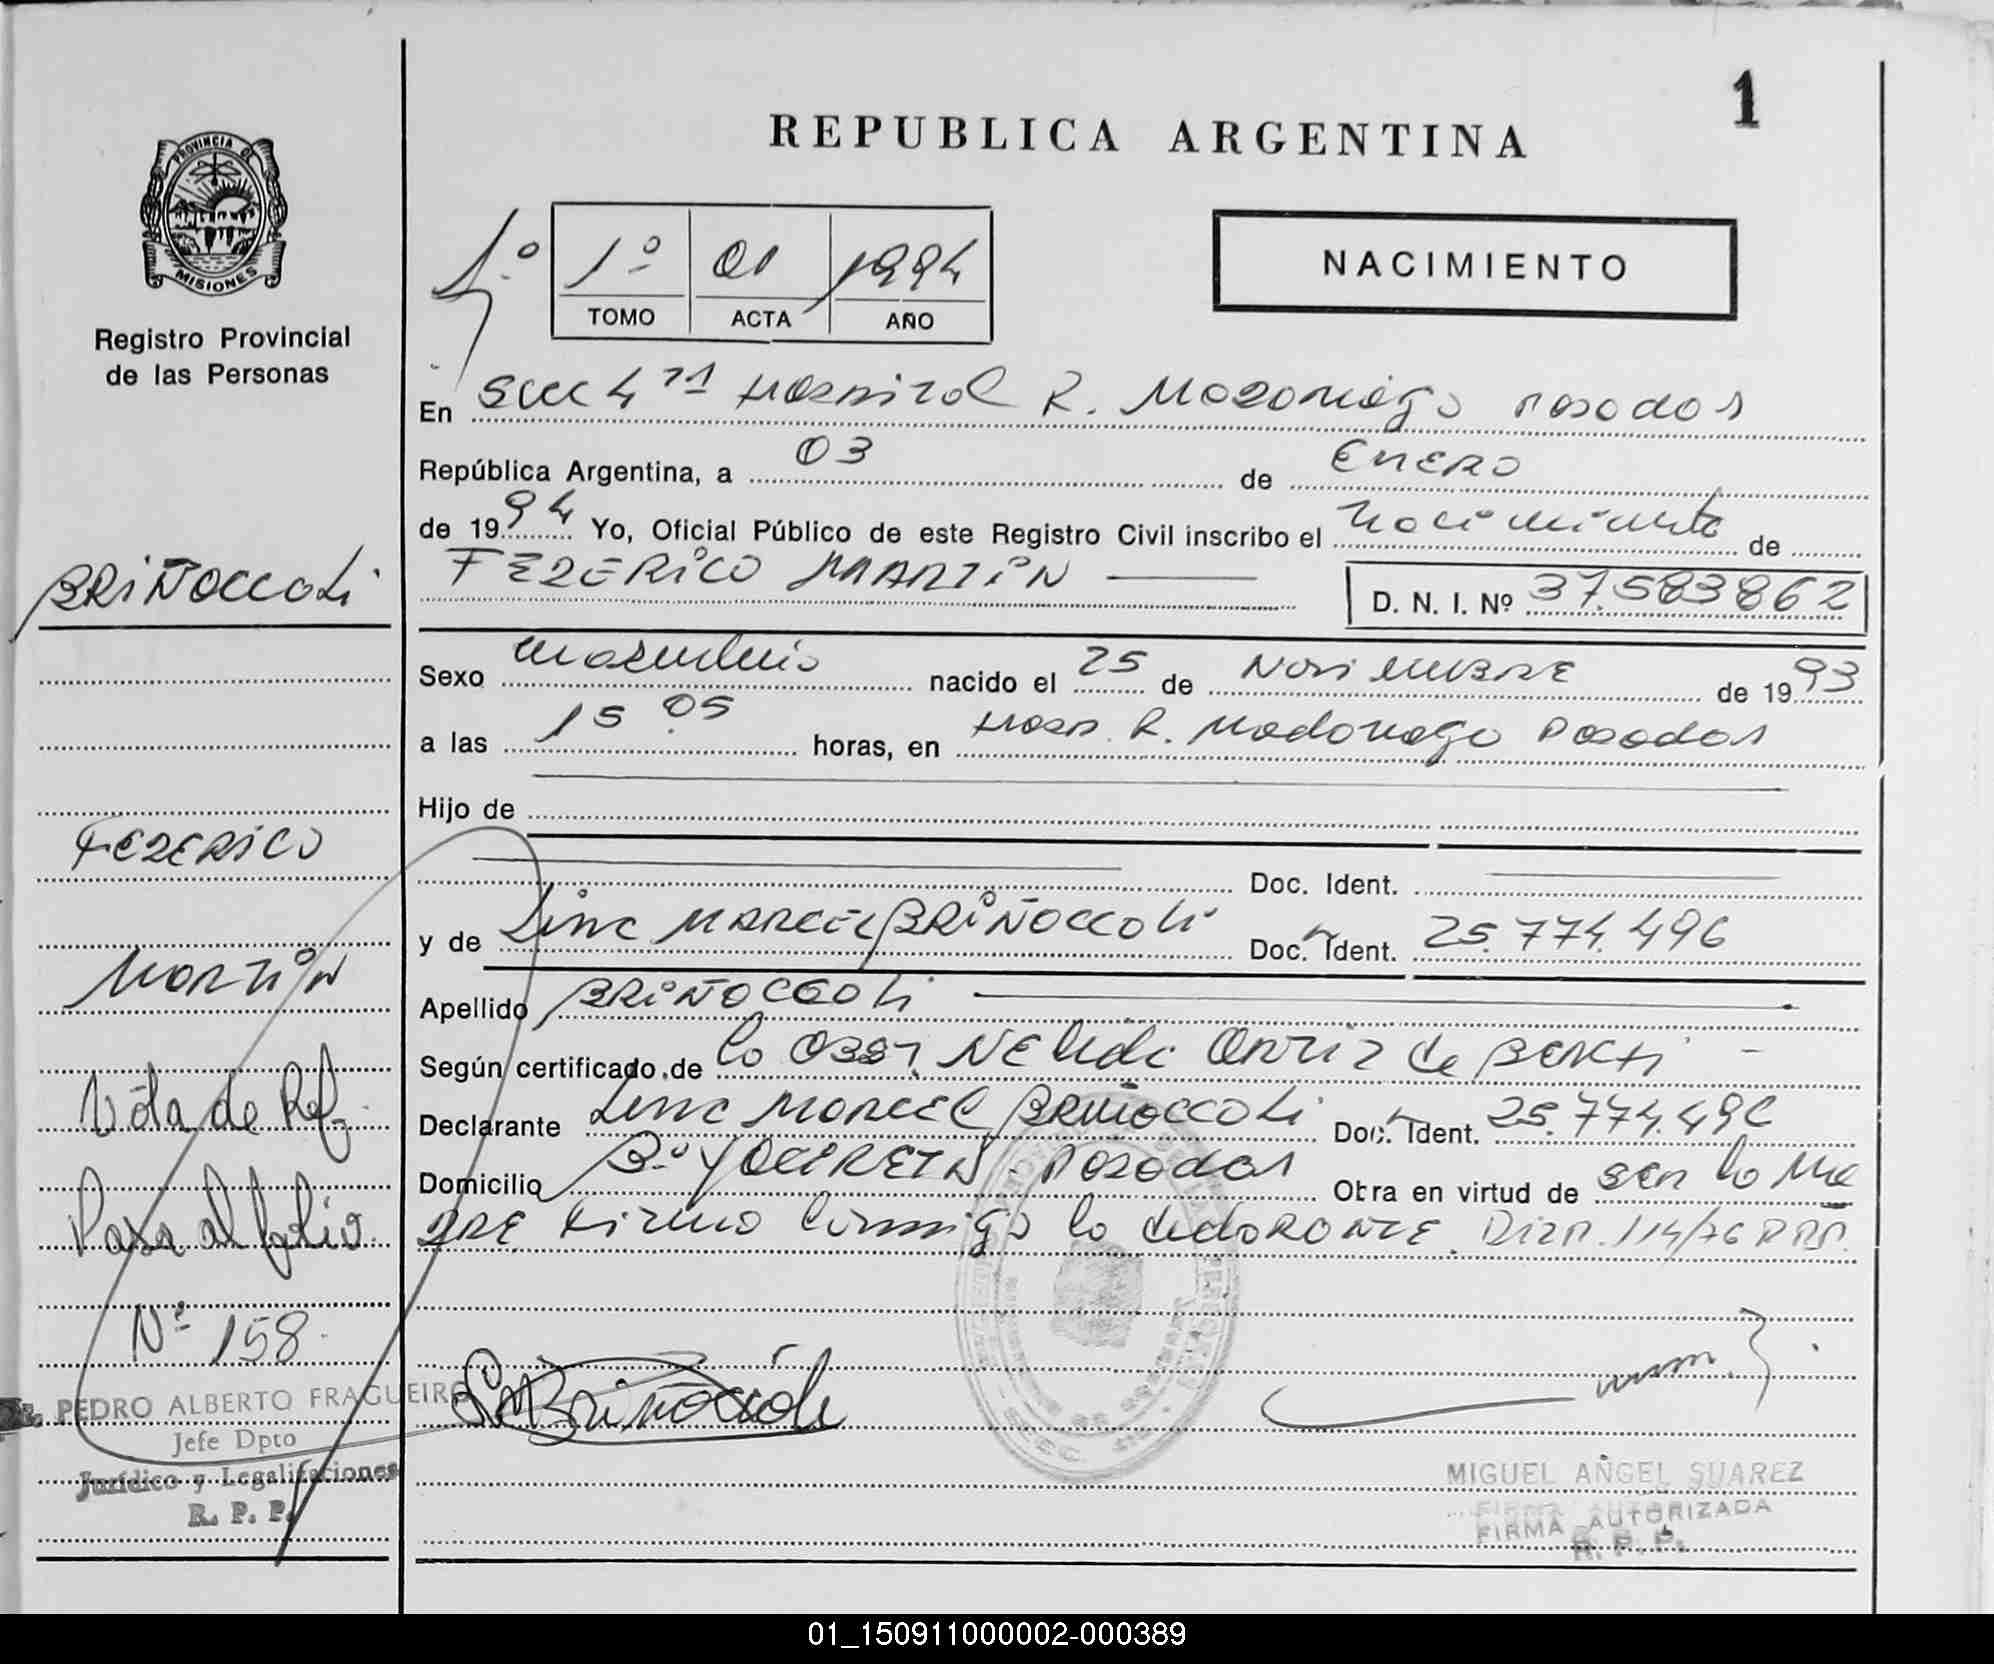 1
REPUBLICA ARGENTINA
PROVINCIA DE
MISIONES
Registro Provincial
de las Personas
1º
1º 01 1994
TOMO ACTA AÑO
NACIMIENTO
En Secc 4ª Hospital R. Madariaga Posadas
República Argentina, a 03 de ENERO
de 1994 Yo, Oficial Público de este Registro Civil inscribo el nacimiento de
FEDERICO MARTIN
D. N. I. Nº 37.583862
BRIÑOCCOLI
FEDERICO
MARTIN
Nota de Ref.
Pasa al folio
Nº 158
Sexo masculino nacido el 25 de NOVIEMBRE de 1993
a las 15.05 horas, en Hosp. R. Madariaga Posadas
Hijo de
Doc. Ident.
y de BRIÑOCCOLI Doc. Ident. 25.774.496
Apellido BRIÑOCCOLI
Según certificado de la Obst. NELIDA ORTIZ de
Declarante BRIÑOCCOLI Doc. Ident. 25.774.496
Domicilio Bº YACIRETA - Posadas Obra en virtud de ser la MA
DRE Firma conmigo la declaRANTE. DISP. 114/76 RPP.
PEDRO ALBERTO FRAGUEIRO
Jefe Dpto
Jurídico y Legalizaciones
R. P. P.
MIGUEL ANGEL SUAREZ
FIRMA AUTORIZADA
R. P. P.
01_150911000002-000389